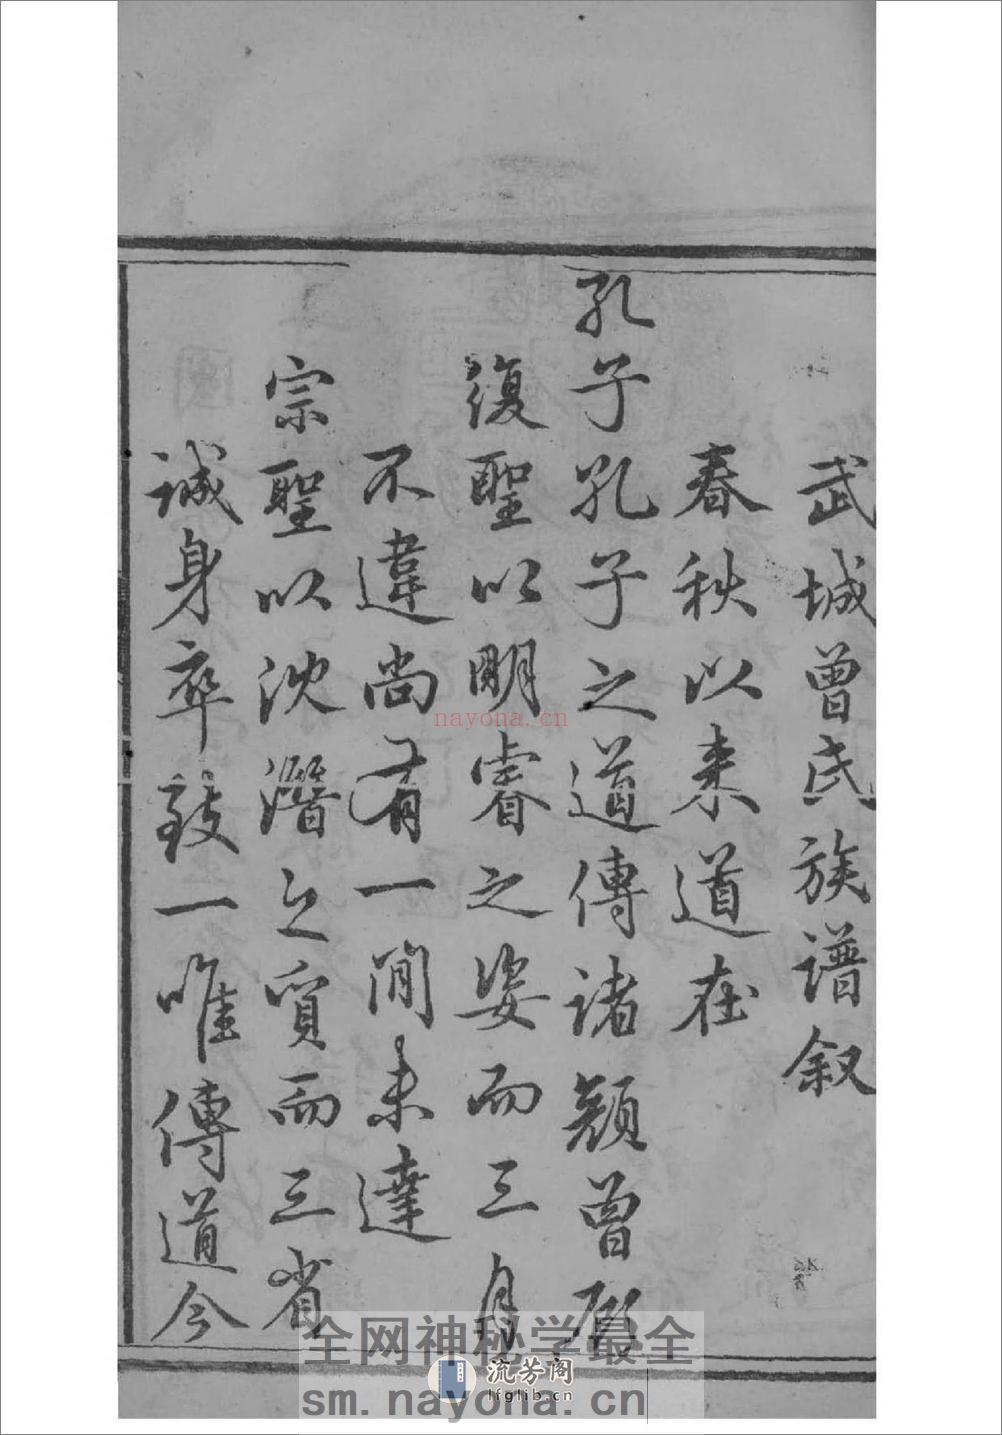 武城曾氏族譜叙
春秋以来道在
孔子孔子之道傳諸顔曾顧
復聖以明睿之姿而三月
不違尚有一間未達
宗聖以沈潛之質而三省
誠身卒致一唯傳道今
nayona.cn
全网神秘学最全
流芳阁
lfglib.cn
sm.nayona.cn